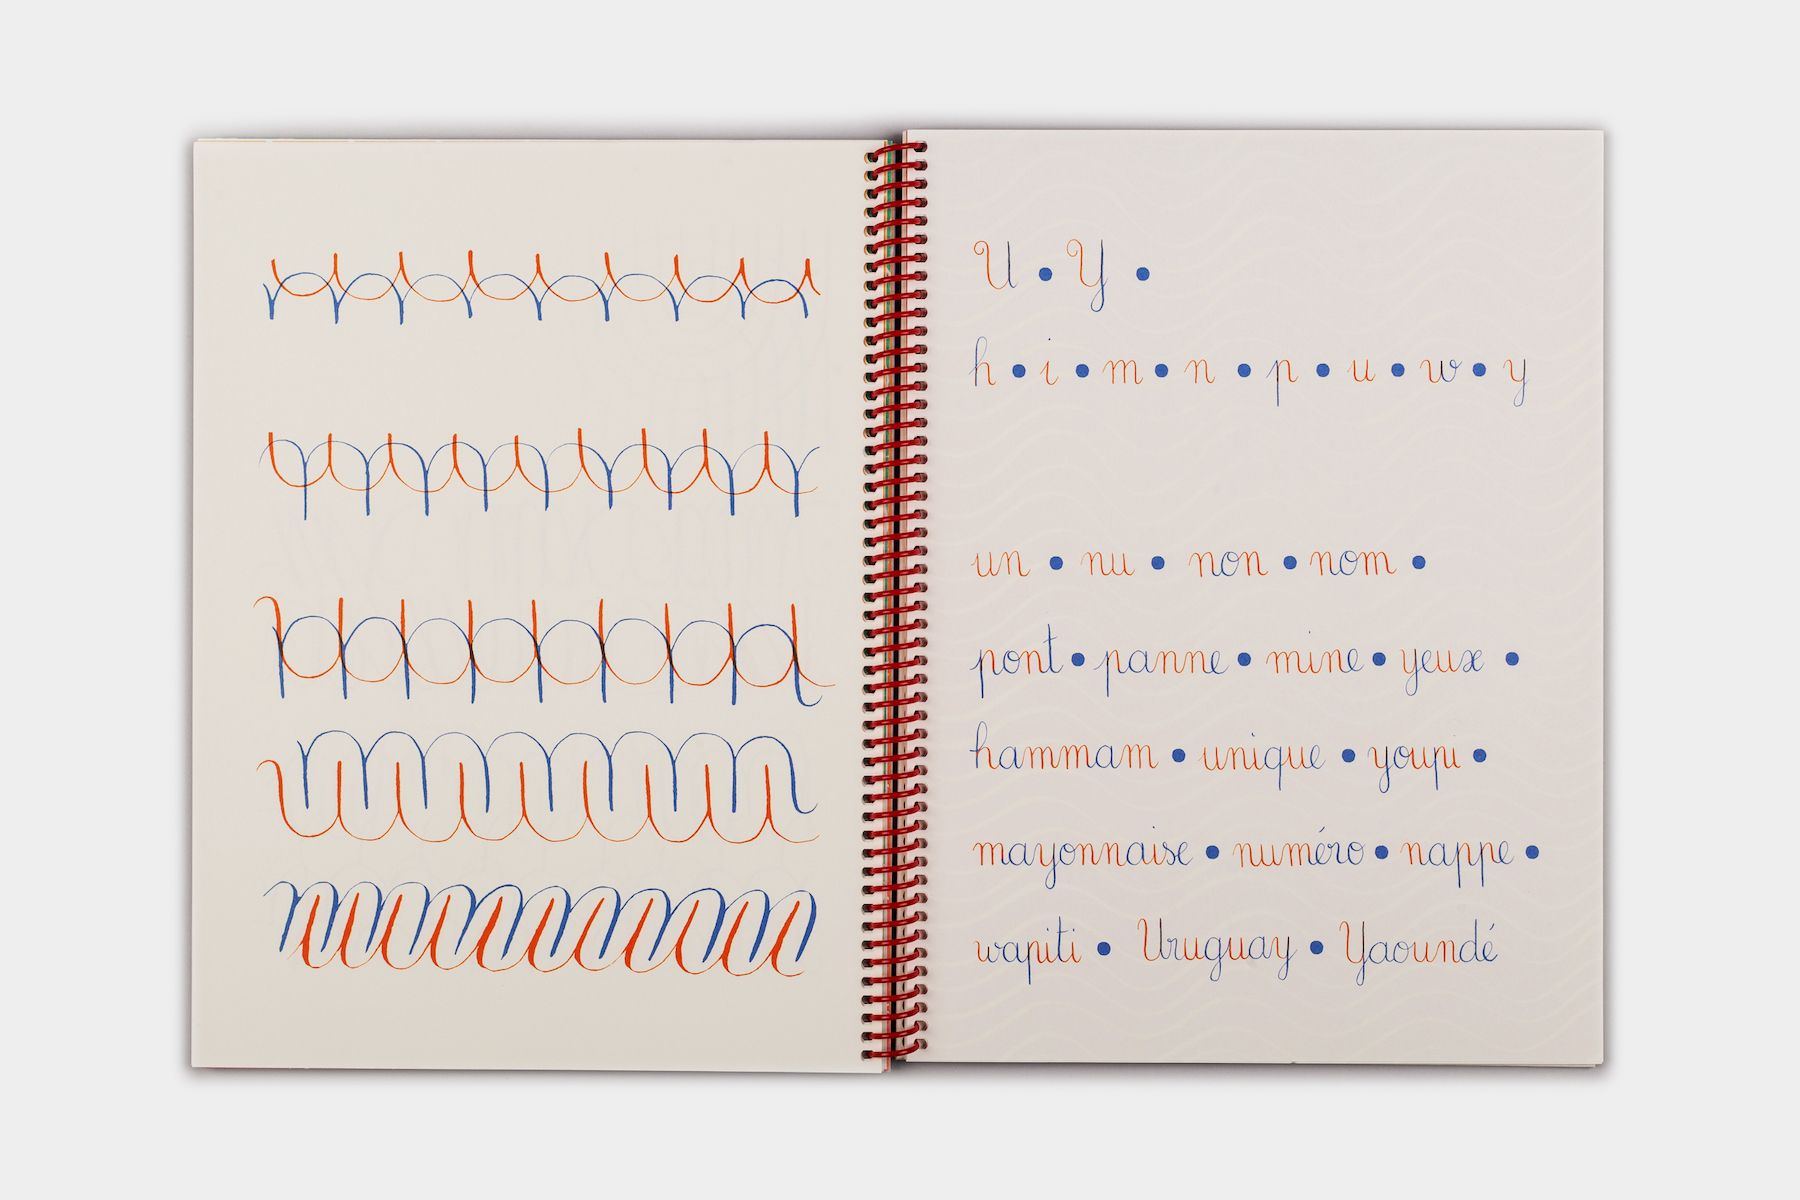 U • Y •
h • i • m • n • p • u • w • y
un • nu • non • nom •
pont • panne • mine • yeux •
hammam • unique • youpi •
mayonnaise • numéro • nappe •
wapiti • Uruguay • Yaoundé